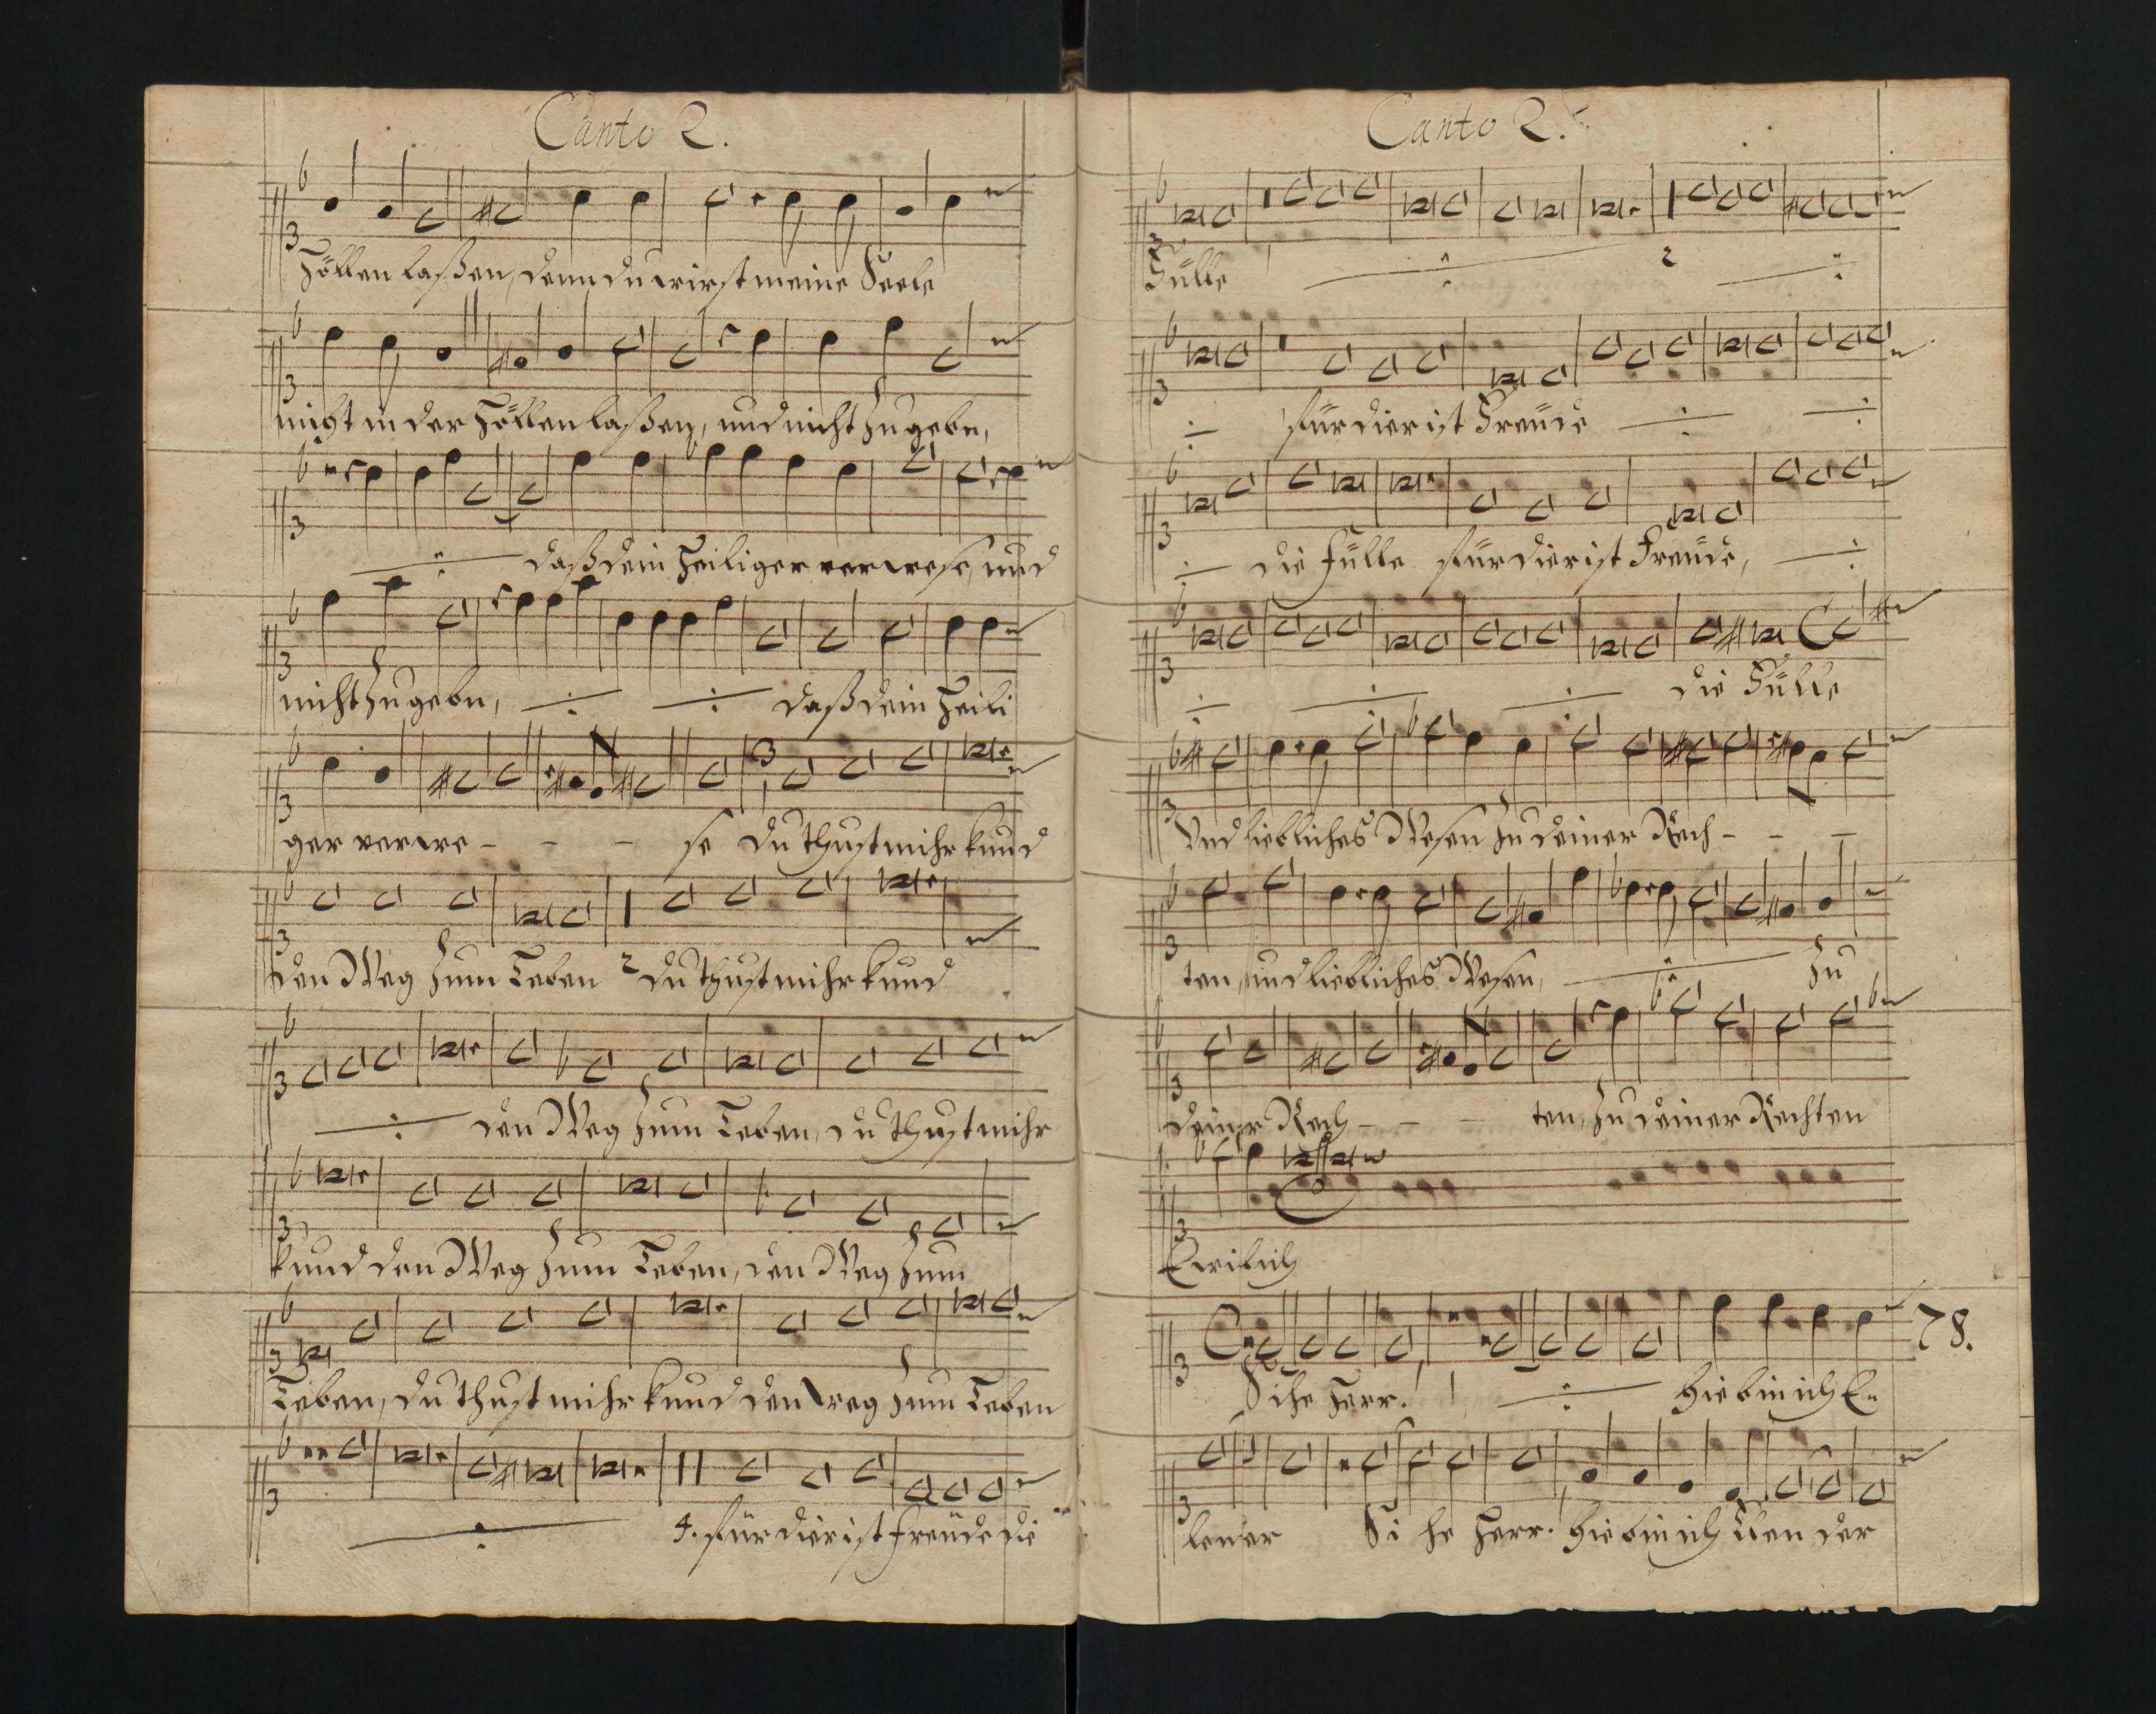 Canto 2.
Höllen laßen, denn du wirst meine Seele
nicht in der Höllen laßen, und nicht zugeben,
daß dein Heiliger verwese, und
nicht zugeben, daß dein Heili
ger verwe - - - se du thust mihr kund
den Weg zum Leben 2 du thust mihr kund
den Weg zum Leben, du thust mihr
kund den Weg zum Leben, den Weg zum
Leben, du thust mihr kund den weg zum Leben
4. für dier ist freüde die
Canto 2.
Fülle 2
für dier ist Freüde
die fülle für dier ist Freüde,
die Fülle
Und liebliches Wesen zu deiner Rech - - -
ten, und liebliches Wesen, zu
deiner Rech - - - ten, zu deiner Rechten
Ewiklich
78.
Sihe Herr. hie bin ich E=
lener Si he Herr. hie bin ich Elen der